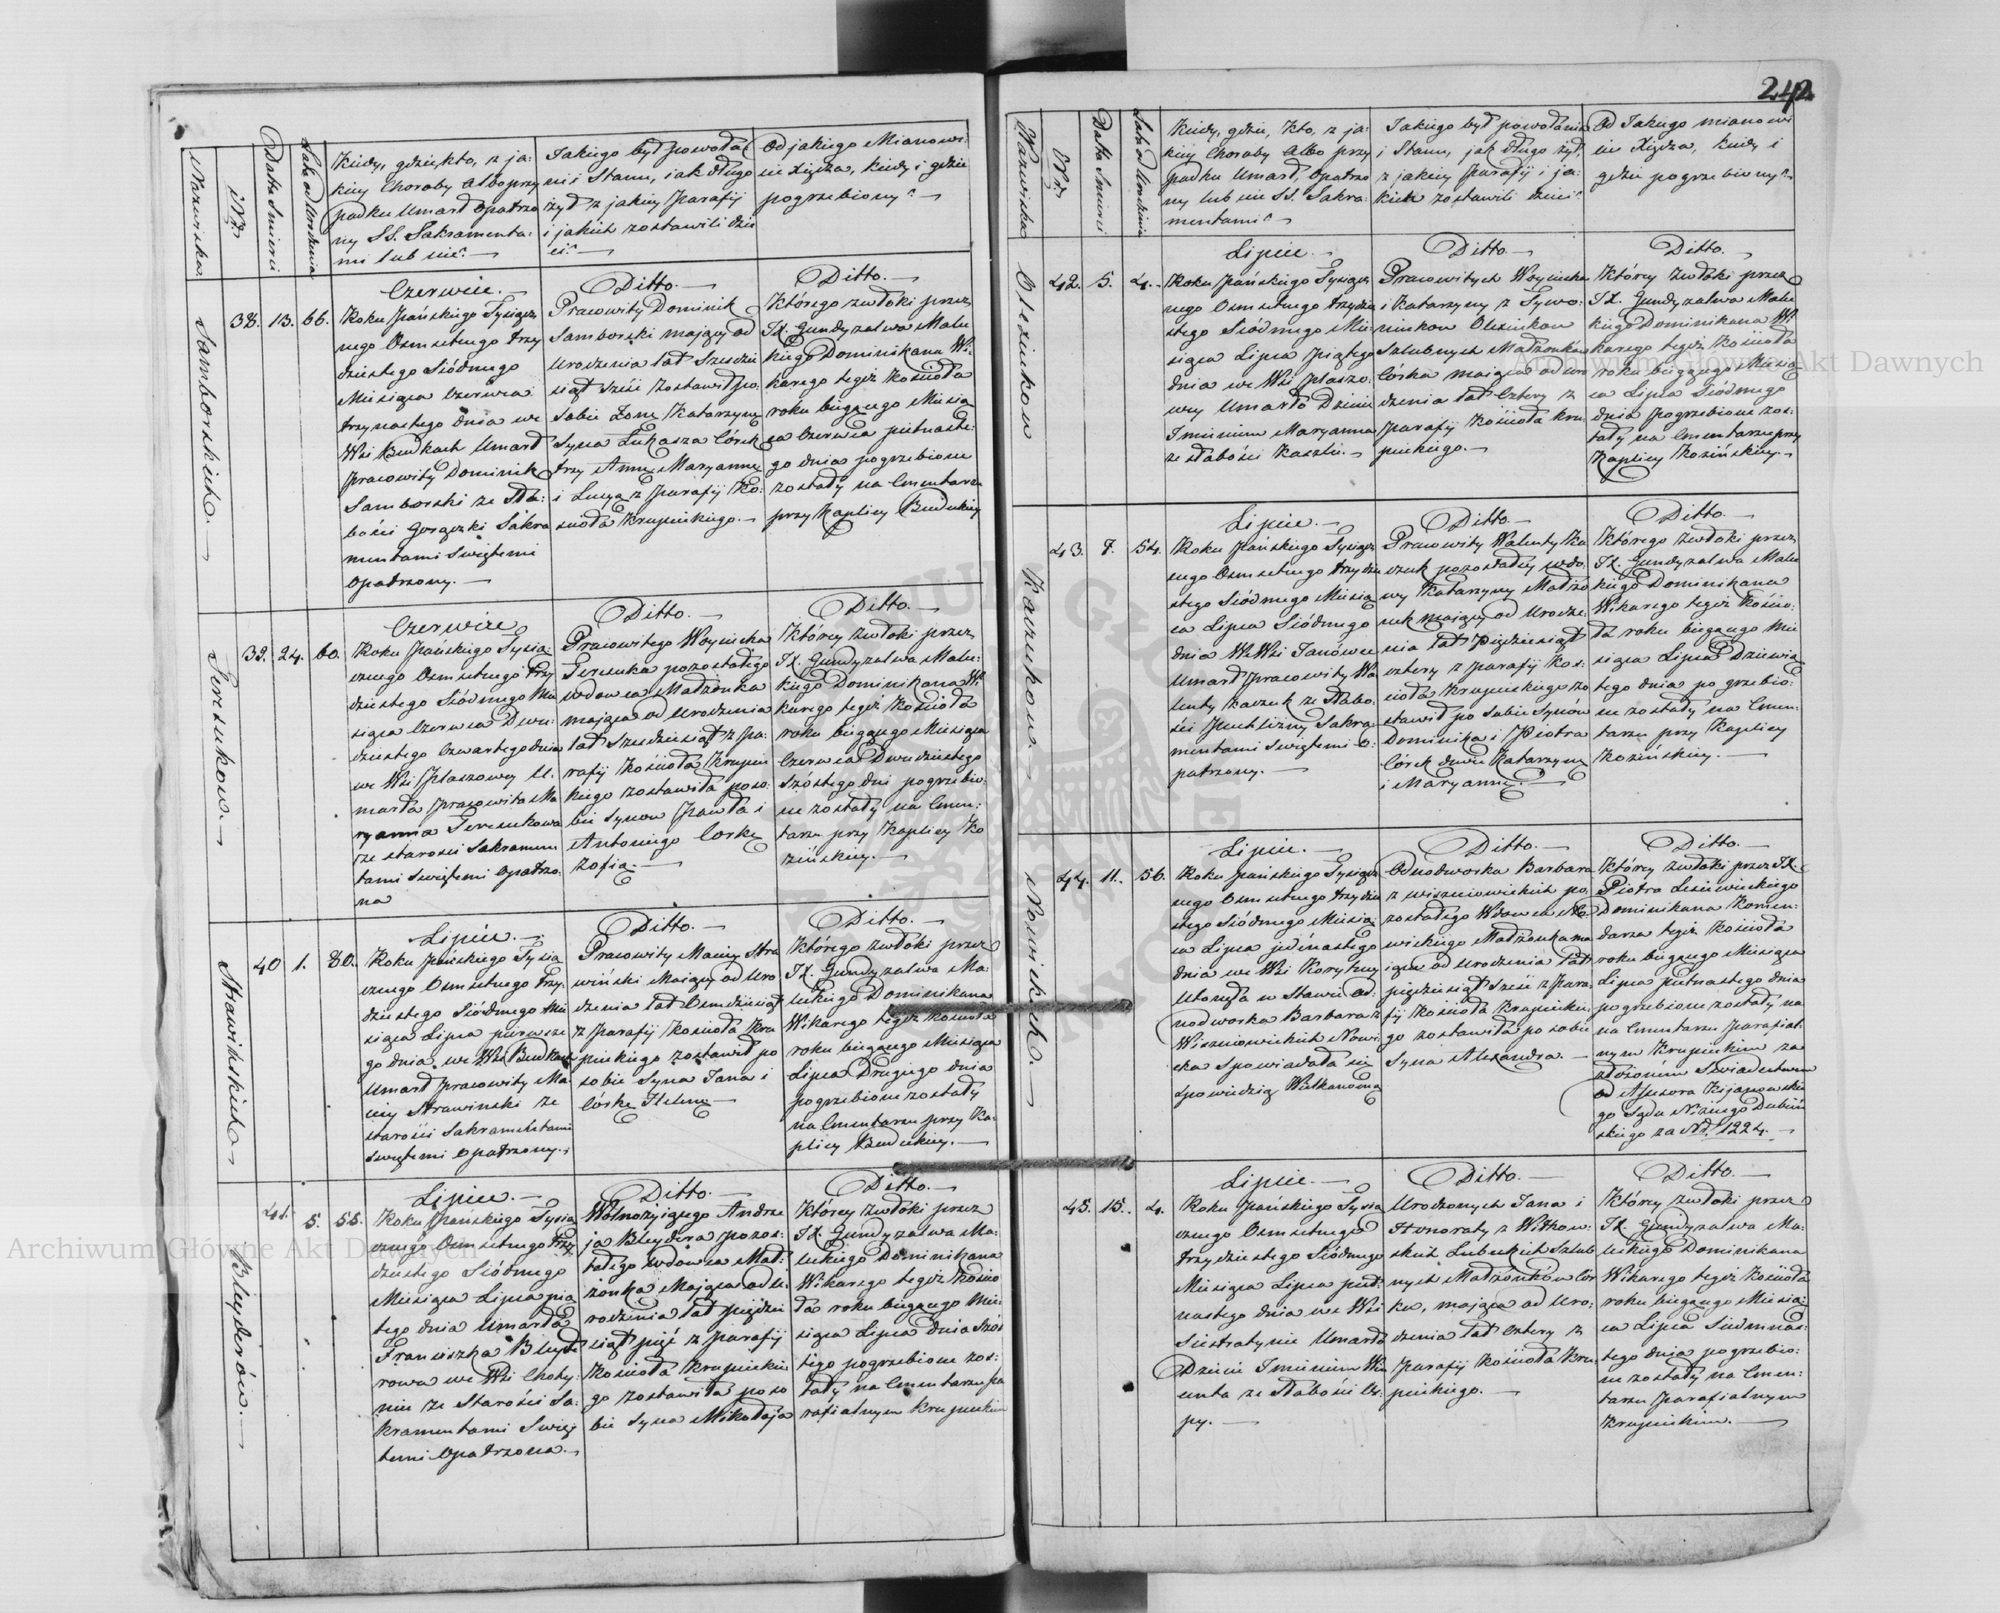 242
Nazwiska
i Nr.
Data Śmierci
Lata od Urodzenia
Kiedy, gdzie, kto, z ja:
kiey Choroby Albo przy
padku Umarł opatrzo
ny SS. Sakramenta:
mi lub nie?
Jakiego był powoła
nia i Stanu, iak długo
żył z jakiey Parafij
i jakich zostawił dzie
ci?
Od jakiego Mianowi
cie Xiędza, kiedy i gdzie
pogrzebiony?
Samborskich.
38.
13.
66.
Czerwiec.
Roku Pańskiego Tysiącz
nego Osmsetnego trzy
dziestego Siódmego
Miesiąca Czerwca
trzynastego dnia we
Wsi Budkach Umarł
pracowity Dominik
Samborski ze Sła:
bości Gorączki Sakra
mentami Swiętemi
opatrzony.
Ditto.
Pracowity Dominik
Samborski mający od
Urodzenia lat Sześdzie
siąt sześć zostawił po:
sobie Żonę Katarzynę
Syna Łukasza Córek
trzy Annę Maryannę
i Lucyą z parafij Ko:
ścioła Krupeckiego.
Ditto.
Którego zwłoki przez
JX. Gundyzalwa Malu
kiego Dominikana Wi:
karego tegoż Kościoła
roku bieżącego Miesią
ca Czerwca pietnaste:
go dnia pogrzebione
zostały na Cmentarzu
przy kaplicy Budeckiey
Teresukow.
39.
24.
60.
Czerwiec
Roku Pańskiego Tysią
cznego Osmsetnego trzy
dziestego Siódmego Mie
siąca Czerwca Dwu:
dziestego Czwartego dnia
we Wsi Płaszowey U:
marła pracowita Ma
ryanna Teresukowa
ze starości Sakramen
tami Swiętemi opatrzo:
na
Ditto.
Pracowitego Woyciecha
Teresuka pozostałego
wdowca Małżonka
mająca od Urodzenia
lat Sześdziesiąt z pa:
rafij Kościoła Krupec
kiego zostawiła poso:
bie Synow Pawła i
Antoniego Corkę
Zofią.
Ditto.
Którey zwłoki przez
JX. Gundyzalwa Malu:
kiego Dominikana Wi
karego tegoż Kościoła
roku bieżącego Miesiąca
Czerwca Dwudziestego
Szóstego dni pogrzebio:
ne zostały na Cmen:
tarzu przy Kaplicy Ko
zińskiey.
Strawińskich
40
1.
80.
Lipiec.
Roku Pańskiego Tysią
cznego Osmsetnego Trzy:
dziestego Siódmego Mie
siąca Lipca pierwsze
go dnia we Wsi Budkach
Umarł pracowity Ma
ciey Strawinski ze
starości Sakramentami
Swiętemi opatrzony.
Ditto.
Pracowity Maciey Stra
wiński Maiący od Uro
dzenia lat Osmdziesiąt
z Parafij Kościoła Kru
peckiego zostawił po
sobie Syna Jana i
Córkę Helenę
Ditto.
Którego zwłoki przez
JX. Gundyzalwa Ma:
luckiego Dominikana
Wikarego tegoż Kościoła
roku bieżącego Miesiąca
Lipca Drugiego dnia
pogrzebione zostały
na Cmentarzu przy Ka:
plicy Budeckiey.
Bleyderów.
41.
5.
55.
Lipiec.
Roku Pańskiego Tysią
cznego Osmsetnego Trzy
dziestego Siódmego
Miesiąca Lipca pią
tego dnia Umarła
Franciszka Bleyde
rowa we Wsi Choty:
niu ze Starości Sa:
kramentami Swię
temi Opatrzona.
Ditto.
Wolnożyjącego Andrze
ja Bleydera pozos:
tałego wdowca Mał:
żonka Mająca od U:
rodzenia lat pięćdzie
siąt pięć z parafij
Kościoła Krupeckie
go zostawiła poso
bie Syna Mikołaja
Ditto.
Którey zwłoki przez
JX. Gundyzalwa Ma:
luckiego Dominikana
Wikarego tegoż Kościo
ła roku bieżącego Mie:
siąca Lipca dnia Szós
tego pogrzebione zos:
tały na Cmentarzu pa
rafialnym Krupeckim
Nazwiska
Nr.
Data Śmierci
Lata od Urodzenia
Kiedy, gdzie, Kto, z ja:
kiey Choroby Albo przy
padku Umarł, Opatrzo
ny lub nie SS. Sakra:
mentami?
Jakiego był powołania
i Stanu, jak długo żył,
z jakiey Parafij i ja:
kich zostawił dzieci?
Od Jakiego mianowi
cie Xiędza, kiedy i
gdzie pogrzebiony?
Olexiukow
42.
5.
4.
Lipiec.
Roku Pańskiego Tysiącz
nego Osmsetnego trzydzie
stego Siódmego Mie
siąca Lipca Piątego
dnia we Wsi Płaszo:
wey Umarło Dziecie
Imieniem Maryanna
ze słabości kaszlu.
Ditto.
Pracowitych Woyciecha
i Katarzyny z Tywo:
niukow Olexiukow
Szlubnych Małżonków
Córka maiąca od uro
dzenia lat Cztery z
Parafij Kościoła Kru
peckiego.
Ditto.
Którey Zwłoki przez
JX. Gundyzalwa Malu
kiego Dominikana Wi
karego tegoż Kościoła
roku bieżącego Miesią
ca Lipca Siódmego
dnia pogrzebione zos:
tały na Cmentarzu przy
Kaplicy Kozińskiey.
Kaczukow
43.
7.
54.
Lipiec.
Roku Pańskiego Tysiącz
nego Osmsetnego trzydzie
stego Siódmego Miesią
ca Lipca Siódmego
dnia We Wsi Janówce
Umarł Pracowity Wa
lenty Kaczuk ze Słabo:
ści Puchlizny Sakra
mentami Swiętemi O:
patrzony.
Ditto.
Pracowity Walenty Ka
czuk pozostałey wdo:
wy Katarzyny Małżo
nek maiący od Urodze:
nia lat Pięćdziesiąt
cztery z parafij Koś:
cioła Krupeckiego zo
stawił po Sobie Synów
Dominika i Piotra
Córek dwie Katarzynę
i Maryannę.
Ditto.
Którego zwłoki przez
JX. Gundyzalwa Malu
kiego Dominikana
Wikarego tegoż Kościo:
ła roku bieżącego Mie
siąca Lipca Dziewią
tego dnia pogrzebio:
ne zostały na Cmen:
tarzu przy Kaplicy
Kozińskiey.
Nowickich.
44.
11.
56.
Lipiec.
Roku Pańskiego Tysiącz
nego Osmsetnego trzydzie
stego Siódmego Miesią
ca Lipca jedénastego
dnia we Wsi Korytney
Utonęła w Stawie od:
nodworka Barbara z
Wiszniowieckich Nowi:
cka Spowiadała się
Spowiedzią Wielkanocną
Ditto.
Odnodworka Barbara
z wiszniowieckich po
zostałego Wdowca No
wickiego Małżonka ma
iąca od urodzenia lat
pięćdziesiąt sześć z Para
fij Kościoła Krupeckie:
go zostawiła po sobie
Syna Alexandra.
Ditto.
Którey zwłoki przez JX.
Piotra Lesiewickiego
Dominikana Komen:
darza tegoż Kościoła
roku bieżącego Miesiąca
Lipca Pietnastego dnia
pogrzebione zostały na
na Cmentarzu parafial:
nym Krupeckim za
złożonem Swiadectwem
od Assesora Kijanowskie
go Sądu Niżnego Dubień
skiego za Nr. 1224.
45.
15.
4.
Lipiec.
Roku Pańskiego Tysią
cznego Osmsetnego
trzydziestego Siódmego
Miesiąca Lipca piet:
nastego dnia we Wsi
Siestratynie Umarło
Dziecie Imieniem Win
centa ze Słabości Os:
py.
Ditto.
Urodzonych Jana i
Honoraty z Witkow:
skich Lubeckich Szlub
nych Małżonków Cór
ka, mająca od Uro:
dzenia lat Cztery z
Parafij Kościoła Kru
peckiego.
Ditto.
Którey zwłoki przez
JX. Gundyzalwa Ma:
luckiego Dominikana
Wikarego tegoż Kościoła
roku bieżącego Miesią:
ca Lipca Siedmnas:
tego dnia pogrzebio:
ne zostały na Cmen:
tarzu Parafialnym
Krupeckim.
Archiwum Główne Akt Dawnych
Archiwum Główne Akt Dawnych